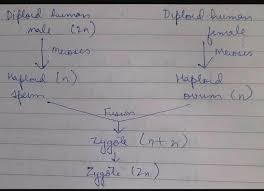 Diploid human Diploid human
male (2n) female
Meiosis Meiosis
Haploid (n) Haploid
sperm ovum (n)
Fusion
Zygote (n+n)
Zygote (2n)